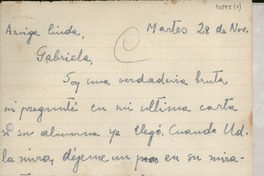 10898 (1)
Amiga linda, Martes 28 de Nov.
Gabriela,
Soy una verdadera bruta
ni pregunté en mi última carta
si su alumna ya llegó. Cuando Ud.
la mira, déjeme un poco en su mira-